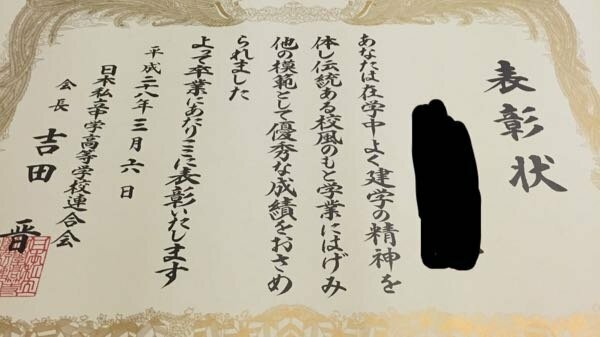 表彰状
あなたは在学中よく建学の精神を
体し伝統ある校風のもと学業にはげみ
他の模範として優秀な成績をおさめ
られました
よって卒業にあたりここに表彰いたします
平成二十八年三月六日
日本私立中学高等学校連合会
会長 吉田 晋